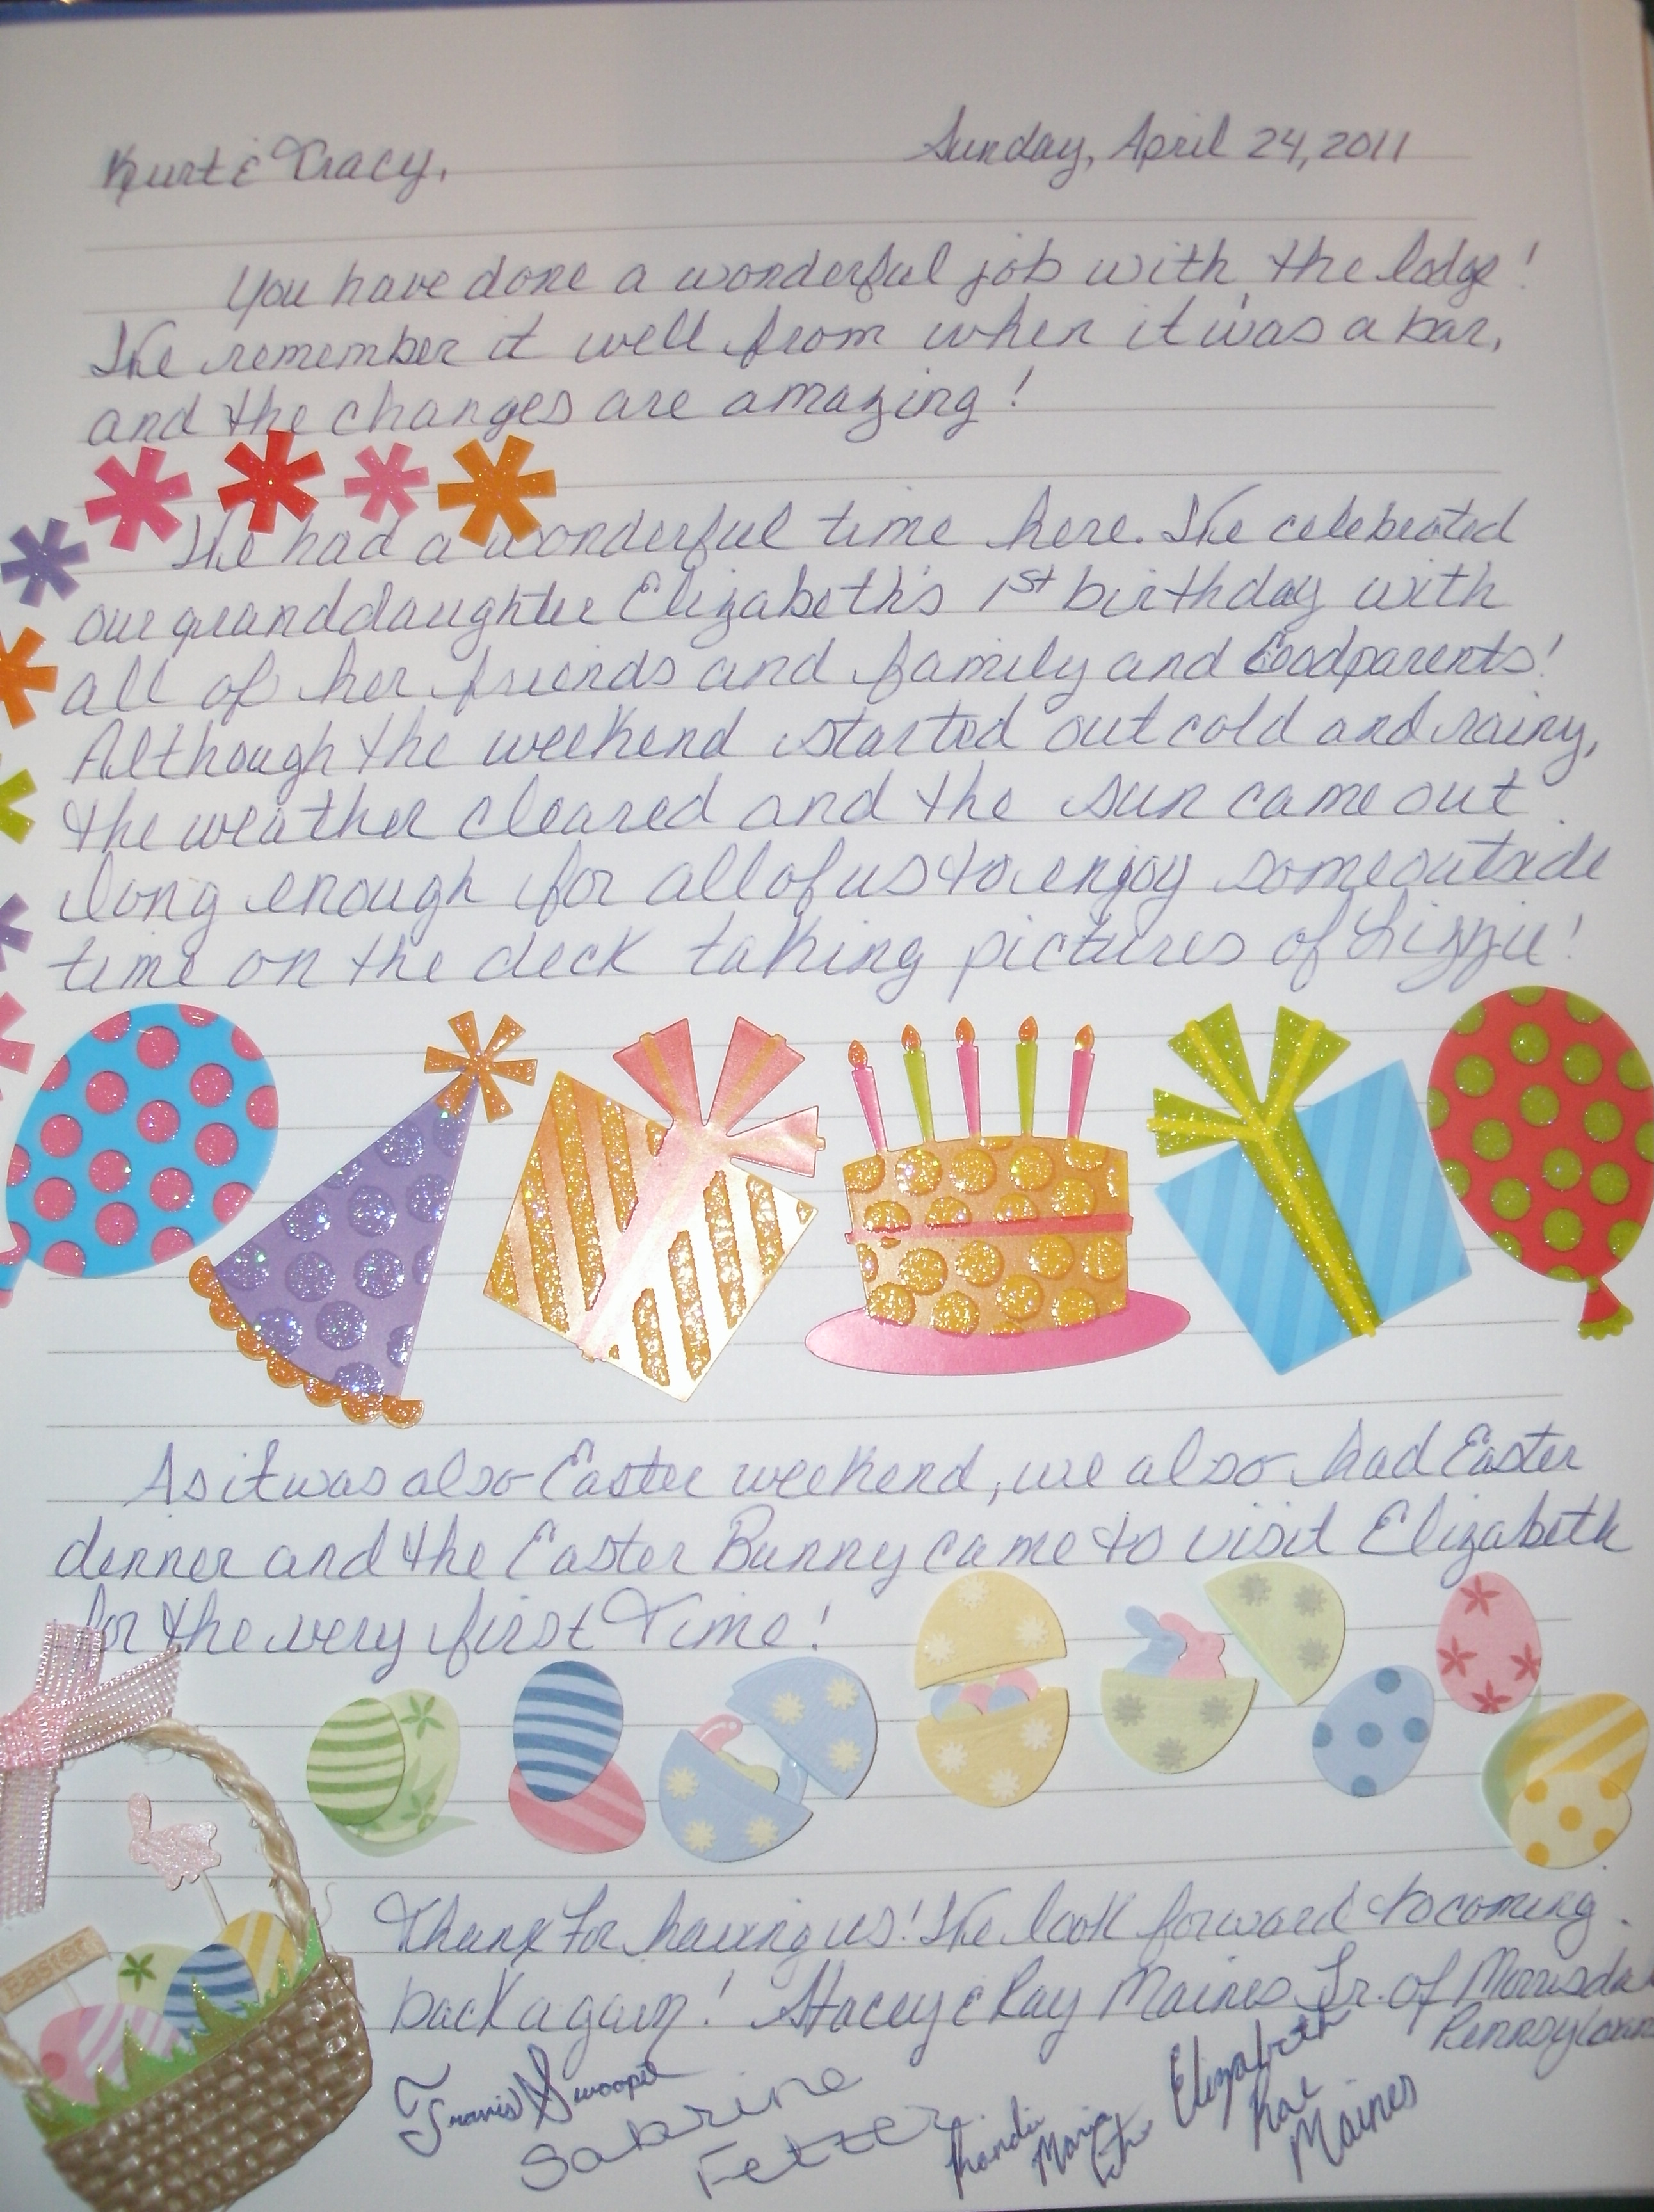 Kurt & Tracy,
Sunday, April 24, 2011
You have done a wonderful job with the lodge!
We remember it well from when it was a bar,
and the changes are amazing!
We had a wonderful time here. We celebrated
our granddaughter Elizabeth's 1st birthday with
all of her friends and family and Goodparents!
Although the weekend started out cold and rainy,
the weather cleared and the sun came out
long enough for all of us to enjoy some outside
time on the deck taking pictures of Lizzie!
As it was also Easter weekend, we also had Easter
dinner and the Easter Bunny came to visit Elizabeth
for the very first Time!
Easter
Thanx For having us! We look forward to coming
back again! Stacey & Ray Maines Jr. of
Travis
Sabrina
Fetzer
Elizabeth
Rae
Maines